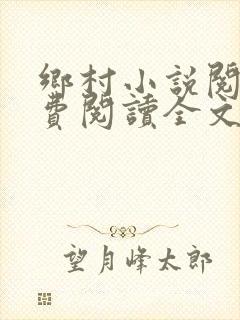 鄉村小說閱
費閱讀全文
望月峰太郎